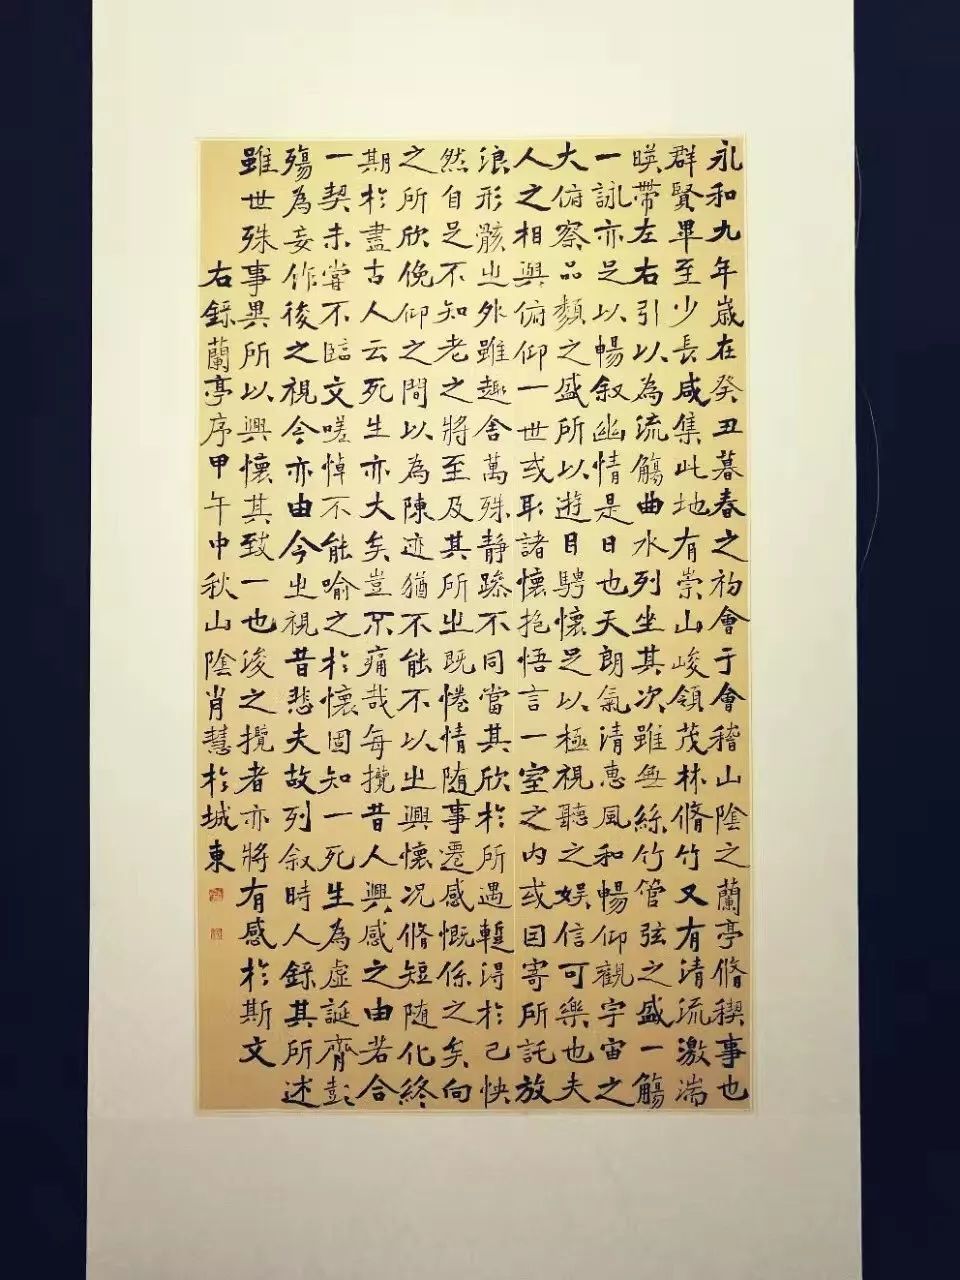 永和九年歲在癸丑暮春之初會于會稽山陰之蘭亭脩稧事也
群賢畢至少長咸集此地有崇山峻領茂林脩竹又有清流激湍
暎帶左右引以為流觴曲水列坐其次雖無絲竹管弦之盛一觴
一詠亦足以暢叙幽情是日也天朗氣清惠風和暢仰觀宇宙之
大俯察品類之盛所以遊目騁懷足以極視聽之娱信可樂也夫
人之相與俯仰一世或取諸懷抱悟言一室之内或因寄所託放
浪形骸之外雖趣舍萬殊静躁不同當其欣於所遇蹔得於己怏
然自足不知老之將至及其所之既惓情随事遷感慨係之矣向
之所欣俛仰之間以為陳迹猶不能不以之興懷况脩短随化終
期於盡古人云死生亦大矣豈不痛哉每攬昔人興感之由若合
一契未嘗不臨文嗟悼不能喻之於懷固知一死生為虛誕齊彭
殤為妄作後之視今亦由今之視昔悲夫故列叙時人錄其所述
雖世殊事異所以興懷其致一也後之攬者亦將有感於斯文
右錄蘭亭序甲午中秋山陰肖慧於城東